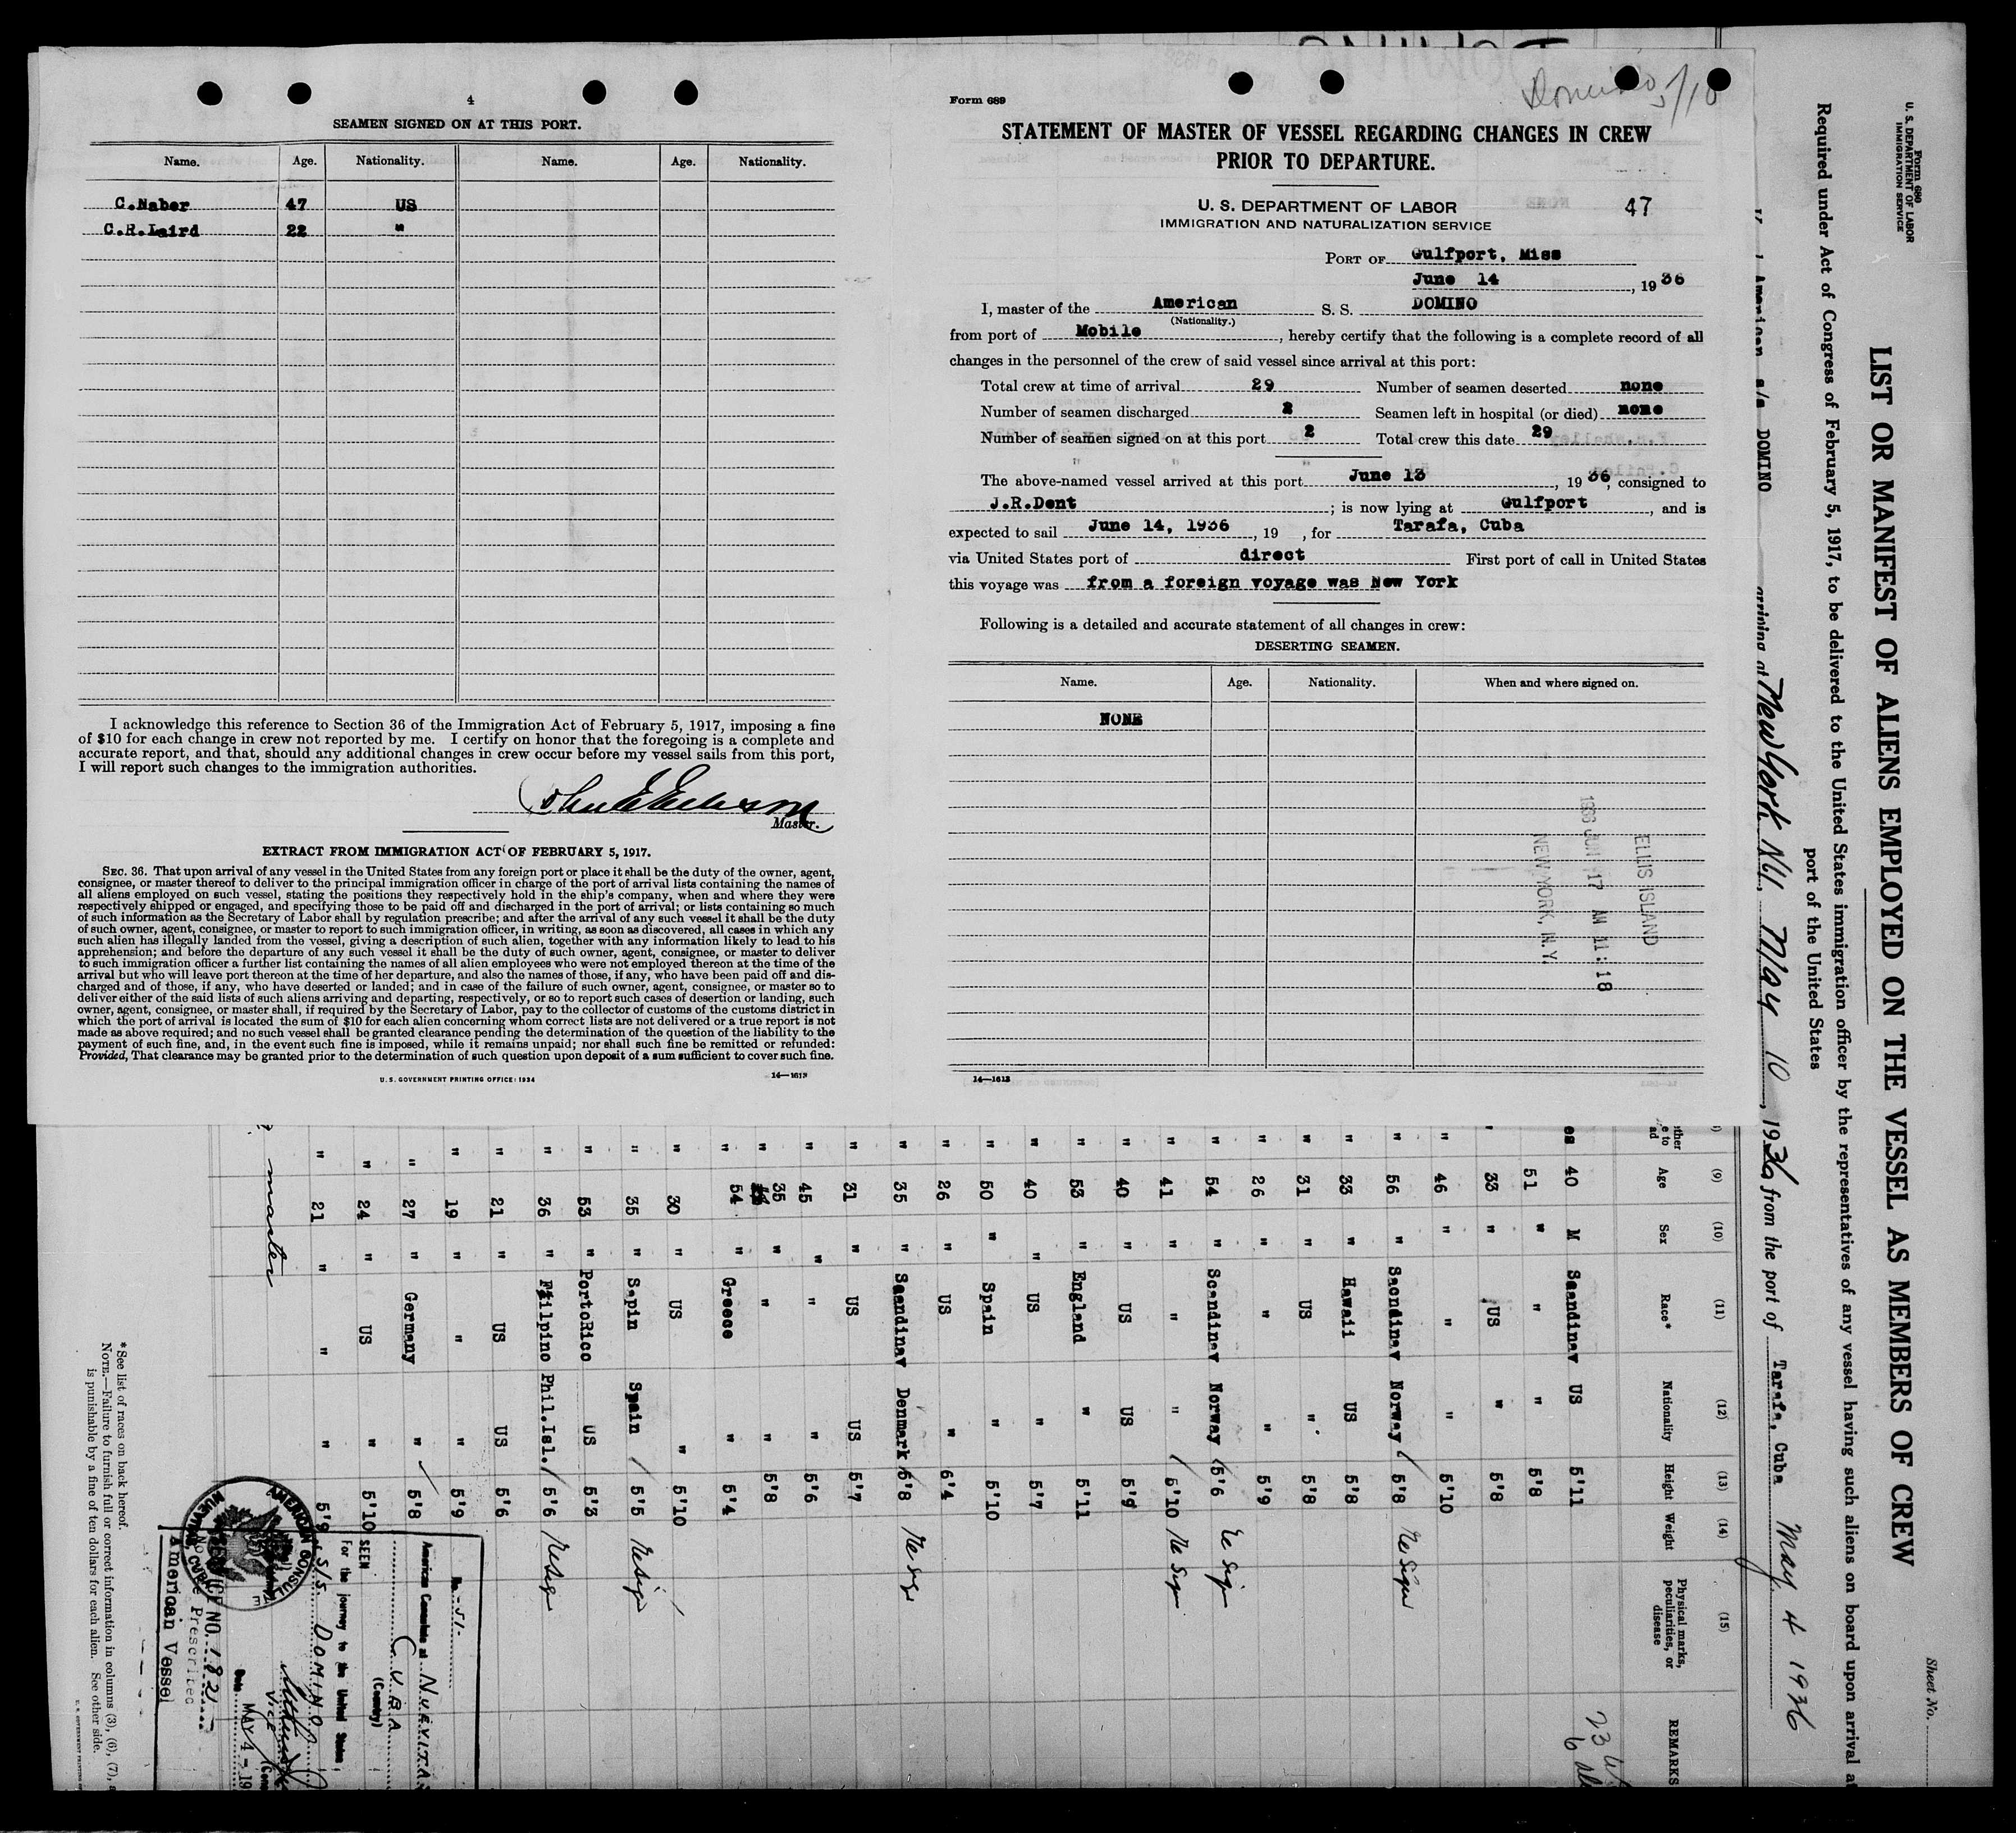 4
SEAMEN SIGNED ON AT THIS PORT.
Name. Age. Nationality. Name. Age. Nationality.
C.Naber 47 US
C.R.Laird 22 "
I acknowledge this reference to Section 36 of the Immigration Act of February 5, 1917, imposing a fine
of $10 for each change in crew not reported by me. I certify on honor that the foregoing is a complete and
accurate report, and that, should any additional changes in crew occur before my vessel sails from this port,
I will report such changes to the immigration authorities.
Master.
EXTRACT FROM IMMIGRATION ACT OF FEBRUARY 5, 1917.
SEC. 36. That upon arrival of any vessel in the United States from any foreign port or place it shall be the duty of the owner, agent,
consignee, or master thereof to deliver to the principal immigration officer in charge of the port of arrival lists containing the names of
all aliens employed on such vessel, stating the positions they respectively hold in the ship's company, when and where they were
respectively shipped or engaged, and specifying those to be paid off and discharged in the port of arrival; or lists containing so much
of such information as the Secretary of Labor shall by regulation prescribe; and after the arrival of any such vessel it shall be the duty
of such owner, agent, consignee, or master to report to such immigration officer, in writing, as soon as discovered, all cases in which any
such alien has illegally landed from the vessel, giving a description of such alien, together with any information likely to lead to his
apprehension; and before the departure of any such vessel it shall be the duty of such owner, agent, consignee, or master to deliver
to such immigration officer a further list containing the names of all alien employees who were not employed thereon at the time of the
arrival but who will leave port thereon at the time of her departure, and also the names of those, if any, who have been paid off and dis-
charged and of those, if any, who have deserted or landed; and in case of the failure of such owner, agent, consignee, or master so to
deliver either of the said lists of such aliens arriving and departing, respectively, or so to report such cases of desertion or landing, such
owner, agent, consignee, or master shall, if required by the Secretary of Labor, pay to the collector of customs of the customs district in
which the port of arrival is located the sum of $10 for each alien concerning whom correct lists are not delivered or a true report is not
made as above required; and no such vessel shall be granted clearance pending the determination of the question of the liability to the
payment of such fine, and, in the event such fine is imposed, while it remains unpaid; nor shall such fine be remitted or refunded:
Provided, That clearance may be granted prior to the determination of such question upon deposit of a sum sufficient to cover such fine.
U.S. GOVERNMENT PRINTING OFFICE: 1934 14—1613
Form 689
Domino 5/10
STATEMENT OF MASTER OF VESSEL REGARDING CHANGES IN CREW
PRIOR TO DEPARTURE.
U. S. DEPARTMENT OF LABOR
47
IMMIGRATION AND NATURALIZATION SERVICE
PORT OF Gulfport, Miss
June 14, 1936
I, master of the American S. S. DOMINO
(Nationality.)
from port of Mobile, hereby certify that the following is a complete record of all
changes in the personnel of the crew of said vessel since arrival at this port:
Total crew at time of arrival 29 Number of seamen deserted none
Number of seamen discharged 2 Seamen left in hospital (or died) none
Number of seamen signed on at this port 2 Total crew this date 29
The above-named vessel arrived at this port June 13, 1936, consigned to
J.R.Dent; is now lying at Gulfport, and is
expected to sail June 14, 1936, 19 , for Tarafa, Cuba
via United States port of direct First port of call in United States
this voyage was from a foreign voyage was New York
Following is a detailed and accurate statement of all changes in crew:
DESERTING SEAMEN.
Name. Age. Nationality. When and where signed on.
NONE
ELLIS ISLAND
1936 JUN 17 AM 11:18
NEW YORK, N.Y.
14—1613
Form 680
U. S. DEPARTMENT OF LABOR
IMMIGRATION SERVICE
Sheet No.
LIST OR MANIFEST OF ALIENS EMPLOYED ON THE VESSEL AS MEMBERS OF CREW
Required under Act of Congress of February 5, 1917, to be delivered to the United States immigration officer by the representatives of any vessel having such aliens on board upon arrival at
port of the United States
American s/s DOMINO arriving at New York NY May 10, 1936 from the port of Tarafa, Cuba May 4 1936
(9) (10) (11) (12) (13) (14) (15)
Age Sex Race* Nationality Height Weight Physical marks, peculiarities, or disease REMARKS
40 M Saandinav US 5'11
51 " " " 5'8
" 33 " US " 5'8
" 46 " " " 5'10
" 56 " Sacndinav Norway 5'8
" 33 " Hawaii US 5'8
" 31 " US " 5'8
" 26 " " " 5'9
" 54 " Scandinav Norway 5'6
" 41 " " " 5'10
" 40 " US US 5'9
" 53 " England " 5'11
" 40 " US " 5'7
" 50 " Spain " 5'10
" 26 " US " 6'4
" 35 " Saandinav Denmark 5'8
" 31 " US US 5'7
" 45 " " " 5'6
" 35 " " " 5'8
" 54 " Greece " 5'4
" 30 " US " 5'10
" 35 " Sapin Spain 5'5
" 53 " PortoRico US 5'3
" 36 " Filpino Phil.Isl. 5'6
" 21 " US US 5'6
" 19 " " " 5'9
" 27 " Germany " 5'8
" 24 " US " 5'10
" 21 " " " 5'9
master
No. 51-
American Consulate at NUEVITAS
CUBA
(Country)
SEEN
For the journey to the United States
of S/S DOMINO
VICE
Date MAY 4-19
SERVICE NO. 1821
No Fee Prescribed
American Vessel
*See list of races on back hereof.
NOTE.—Failure to furnish full or correct information in columns (3), (6), (7),
is punishable by a fine of ten dollars for each alien. See other side.